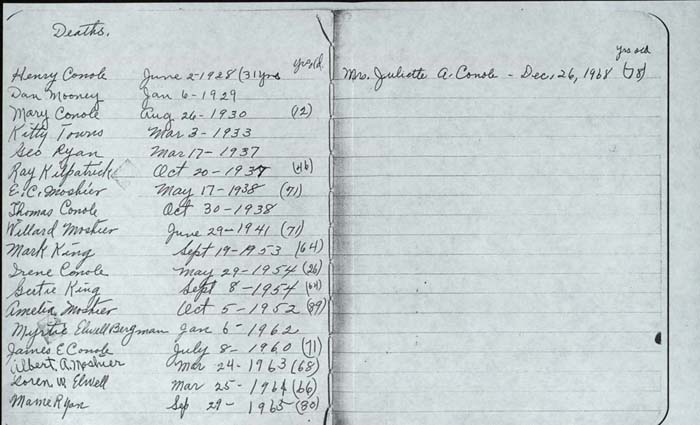 Deaths.
yrs old
Henry Conole June 2-1928 (31 yrs
Dan Mooney Jan 6-1929
Mary Conole Aug 26-1930 (12)
Kitty Towns Mar 3-1933
Geo Ryan Mar 17-1937
Ray Kilpatrick Oct 20-1937 (46)
E.C. Moshier May 17-1938 (71)
Thomas Conole Oct 30-1938
Willard Moshier June 29-1941 (71)
Mark King Sept 19-1953 (64)
Irene Conole May 29-1954 (26)
Gertie King Sept 8-1954 (64)
Amelia Moshier Oct 5-1952 (89)
Myrtie Elwell Bergman Jan 6-1962
James E Conole July 8-1960 (71)
Albert A. Moshier Mar 24-1963 (68)
Loren W Elwell Mar 25-1964 (66)
Mame Ryan Sep 29-1965 (80)
yrs old
Mrs. Juliette A. Conole - Dec, 26, 1968 (78)